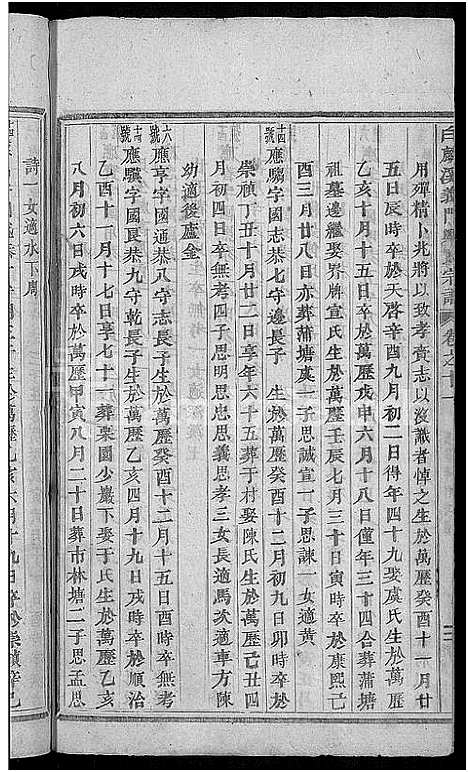 白麟溪義門鄭氏宗譜 卷之十一
用殫精卜兆將以致孝賫志以沒識者悼之生於萬歷癸酉十一月廿
五日辰時卒於天啓辛酉九月初二日得年四十九娶虞氏生於萬歷
乙亥十月十五日卒於萬歷戊申六月十八日僅年三十四合葬蒲塘
祖墓邊繼娶界牌宣氏生於萬歷壬辰七月三十日寅時卒於康熙己
酉三月廿八日亦葬蒲塘虞一子思誠宣一子思諫一女適黃
十四號應驕字國恭 生於萬歷癸酉十二月初九日卯時卒於
崇禎丁丑十月廿二日享年六十五葬于村娶陳氏生於萬歷己丑四
月初四日卒無考四子思明思忠思義思孝三女長適馬次適車方陳
幼適後廬金
六八號應亨字國通恭八守志長子生於萬歷癸酉十二月十五日酉時卒無考
十號應驥字國良恭九守乾長子生於萬歷乙亥四月十九日戌時卒於順治
乙酉十一月十七日享年七十一葬栗園少巖下娶于氏生於萬歷乙亥
八月初六日戌時卒於萬歷甲寅八月二十日葬市林塘二子思孟思
詩一女適水下周